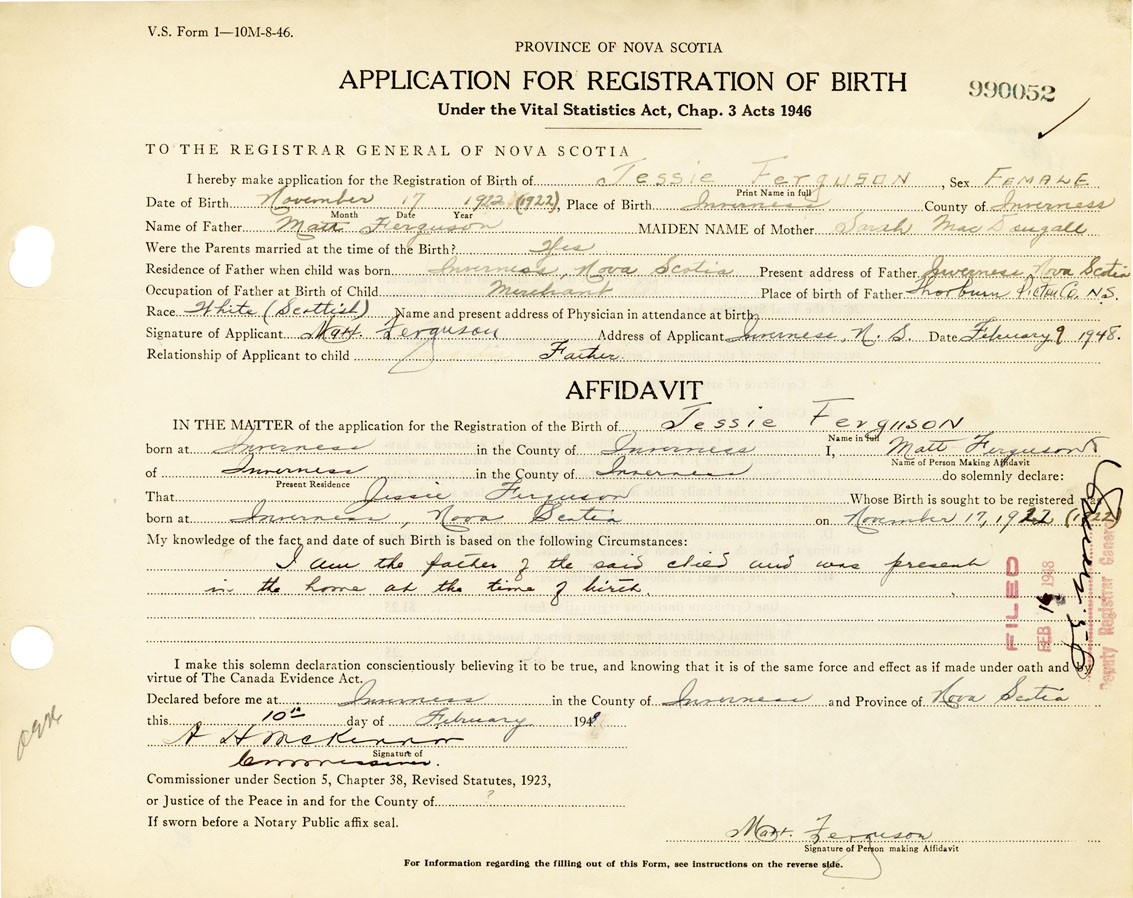 V.S. Form 1—10M-8-46.
PROVINCE OF NOVA SCOTIA
APPLICATION FOR REGISTRATION OF BIRTH
990052
Under the Vital Statistics Act, Chap. 3 Acts 1946
TO THE REGISTRAR GENERAL OF NOVA SCOTIA
I hereby make application for the Registration of Birth of Jessie Ferguson, Sex Female
Print Name in full
Date of Birth November 17 1922 (1922), Place of Birth Inverness County of Inverness
Month Date Year
Name of Father Matt Ferguson MAIDEN NAME of Mother Sarah MacDougall
Were the Parents married at the time of the Birth? Yes
Residence of Father when child was born Inverness, Nova Scotia Present address of Father Inverness Nova Scotia
Occupation of Father at Birth of Child Merchant Place of birth of Father Thorburn Pictou Co. N.S.
Race White (Scottish) Name and present address of Physician in attendance at birth
Signature of Applicant Matt. Ferguson Address of Applicant Inverness, N. S. Date February 9 1948.
Relationship of Applicant to child Father.
AFFIDAVIT
IN THE MATTER of the application for the Registration of the Birth of Jessie Ferguson
Name in full
born at Inverness in the County of Inverness I, Matt Ferguson
Name of Person Making Affidavit
of Inverness in the County of Inverness do solemnly declare:
Present Residence
That Jessie Ferguson Whose Birth is sought to be registered was
born at Inverness, Nova Scotia on November 17, 1922 (1922)
My knowledge of the fact and date of such Birth is based on the following Circumstances:
I am the father of the said child and was present
in the home at the time of birth.
FILED
FEB 1948
Deputy Registrar General
I make this solemn declaration conscientiously believing it to be true, and knowing that it is of the same force and effect as if made under oath and by
virtue of The Canada Evidence Act.
Declared before me at Inverness in the County of Inverness and Province of Nova Scotia
this 10th day of February 1948
A H McKinnon
Signature of
Commissioner.
Commissioner under Section 5, Chapter 38, Revised Statutes, 1923,
or Justice of the Peace in and for the County of ?
If sworn before a Notary Public affix seal.
Matt. Ferguson
Signature of Person making Affidavit
For Information regarding the filling out of this Form, see instructions on the reverse side.